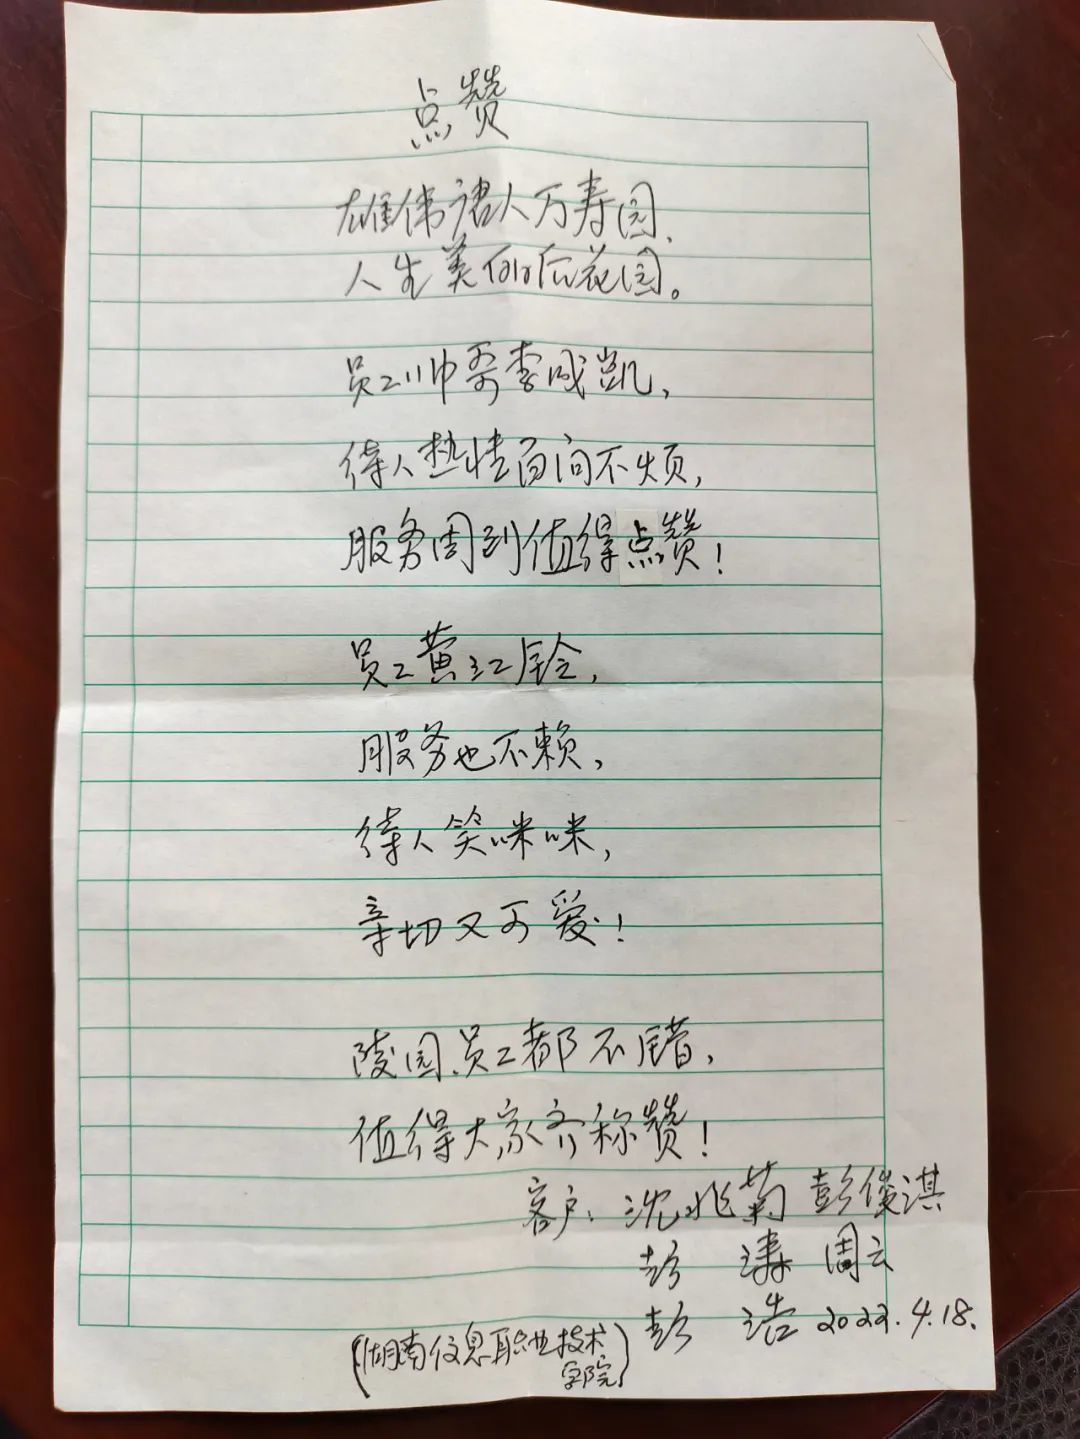 点赞
雄伟诸人万寿园、
人生美的后花园。
员工帅哥李成凯,
待人热情百问不烦,
服务周到值得点赞!
员工黄江铃,
服务也不赖,
待人笑咪咪,
亲切又可爱!
陵园员工都不错,
值得大家齐称赞!
客户:沈兆菊 彭俊淇
彭 周云
彭 浩 2022.4.18.
(湖南信息职业技术
学院)